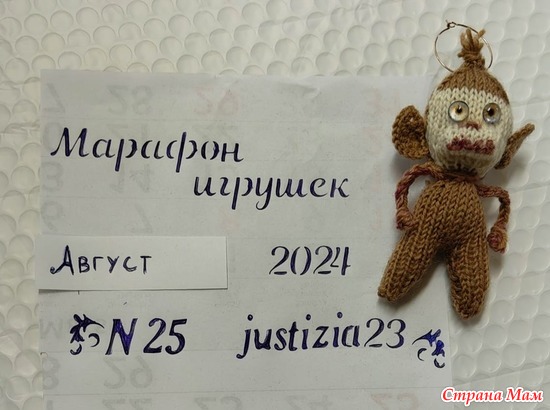 Марафон
игрушек
Август 2024
N 25 justizia23
Страна Мам